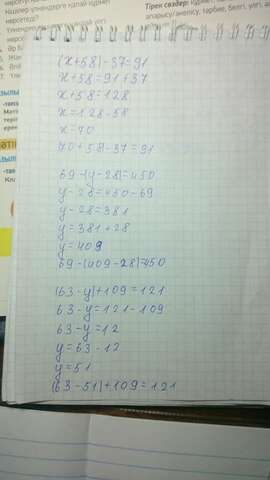 нәрсетеді?
(x+58)-37=91
x+58=91+37
x+58=128
x=128-58
x=70
70+58-37=91
69-(y-28)=450
y-28=450-69
y-28=381
y=381+28
y=409
69-(409-28)=450
(63-y)+109=121
63-y=121-109
63-y=12
y=63-12
y=51
(63-51)+109=121